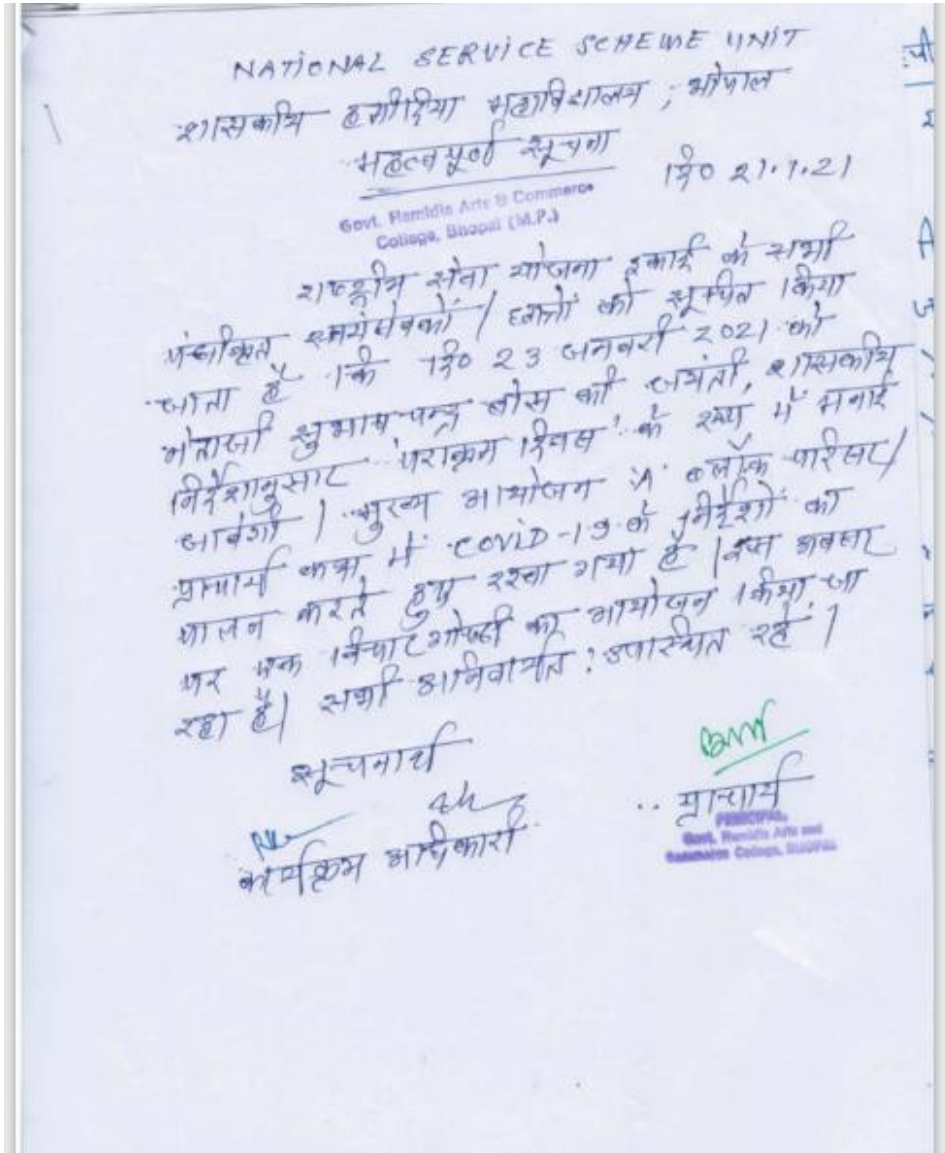 NATIONAL SERVICE SCHEME UNIT
शासकीय हमीदिया महाविद्यालय, भोपाल
महत्वपूर्ण सूचना
दि० 21.1.21
Govt. Hamidia Arts & Commerce
College, Bhopal (M.P.)
राष्ट्रीय सेवा योजना इकाई के सभी
पंजीकृत स्वयंसेवकों / छात्रों को सूचित किया
जाता है कि दि० 23 जनवरी 2021 को
नेताजी सुभाष चन्द्र बोस की जयंती, शासकीय
निर्देशानुसार "पराक्रम दिवस" के रूप में मनाई
जावेगी। मुख्य आयोजन 'A' ब्लॉक परिसर/
प्राचार्य कक्ष में COVID-19 के निर्देशों का
पालन करते हुए रखा गया है। इस अवसर
पर एक विचार गोष्ठी का आयोजन किया जा
रहा है। सभी अनिवार्यत: उपस्थित रहें।
सूचनार्थ
प्राचार्य
PRINCIPAL
Govt. Hamidia Arts and
Commerce College, BHOPAL
कार्यक्रम अधिकारी